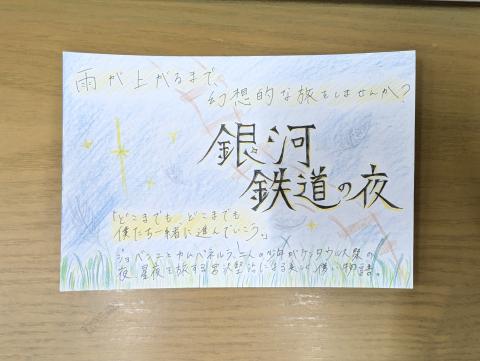 雨が上がるまで、
幻想的な旅をしませんか?
銀河
鉄道の夜
「どこまでも、どこまでも
僕たち一緒に進んでいこう。」
ジョバンニとカムパネルラ、二人の少年がケンタウル祭の
夜、星夜を旅する宮沢賢治による美しく儚い物語。